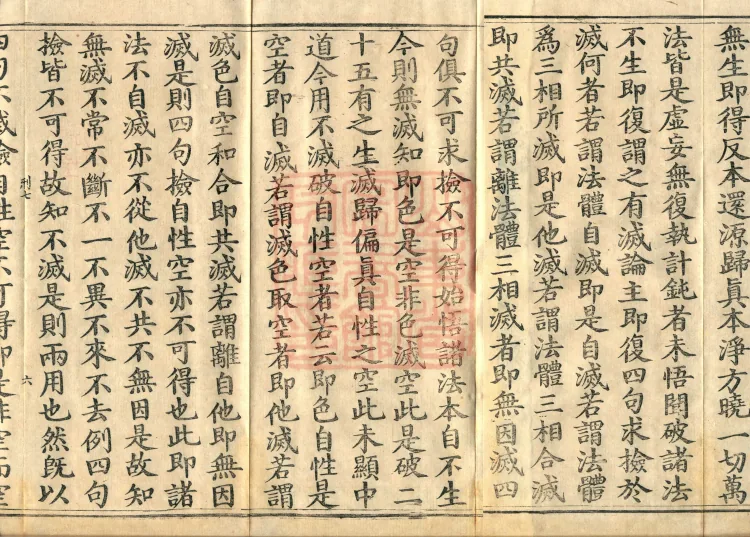 無生即得反本還源歸眞本淨方曉一切萬
法皆是虛妄無復執計鈍者未悟聞破諸法
不生即復謂之有滅論主即復四句求撿於
滅何者若謂法體自滅即是自滅若謂法體
爲三相所滅即是他滅若謂法體三相合滅
即共滅若謂離法體三相滅者即無因滅四
句俱不可求撿不可得始悟諸法本自不生
今則無滅知即色是空非色滅空此是破二
十五有之生滅歸偏眞自性之空此未顯中
道今用不滅破自性空者若云即色自性是
空者即自滅若謂滅色取空者即他滅若謂
滅色自空和合即共滅若謂離自他即無因
滅是則四句撿自性空亦不可得也此即諸
法不自滅亦不從他滅不共不無因是故知
無滅不常不斷不一不異不來不去例四句
刑七
六
撿皆不可得故知不滅是則兩用也然旣以
四句不滅撿自性空不可得即是非空而空